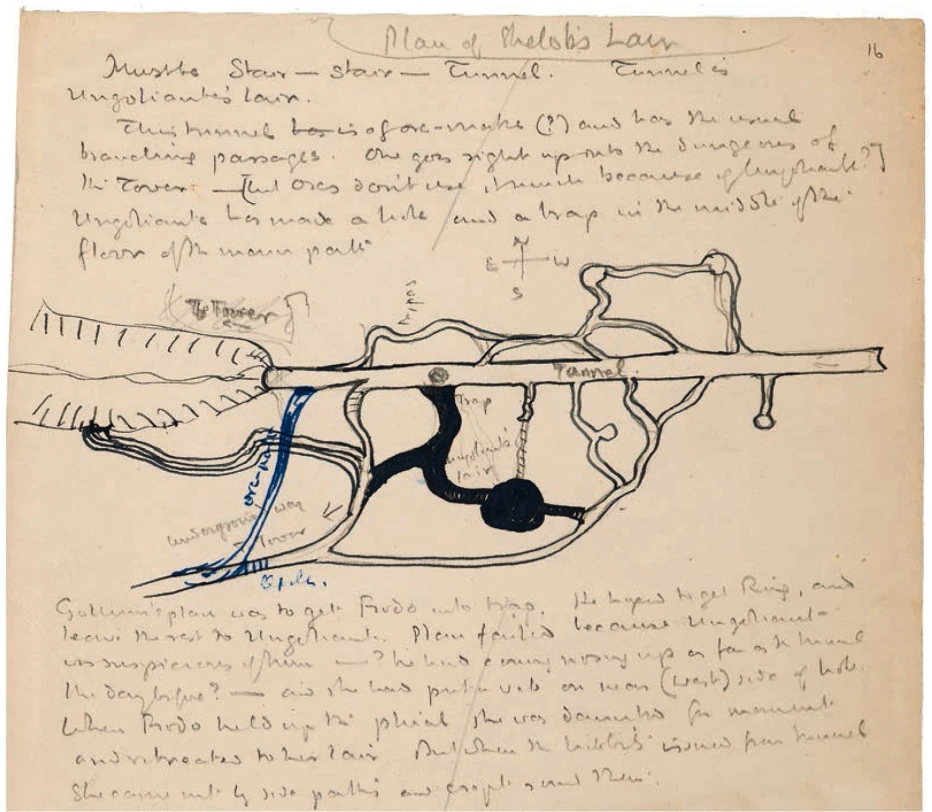 Plan of Shelob's Lair
16
Must be Stair — stair — Tunnel. Tunnel is
Ungoliante's lair.
This tunnel is of orc-make (?) and has the usual
branching passages. One goes right up into the dungeons of
the Tower: — [but orcs don't use it much because of Ungoliante?]
Ungoliante has made a hole and a trap in the middle of the
floor of the main path
N
E W
S
To Tower
Tunnel
Trap
Ungoliante's
lair
orc-way
underground way
tower
Gollum's plan was to get Frodo into trap. He hoped to get Ring, and
leave the rest to Ungoliante. Plan failed because Ungoliante
was suspicious of him — ? he had coming nosing up as far as the tunnel
the day before? — and she had put web on near (west) side of hole.
When Frodo held up the phial she was daunted for moment
and retreated to her lair. But when the hobbits issued from tunnel
she came out by side paths and crept round them.